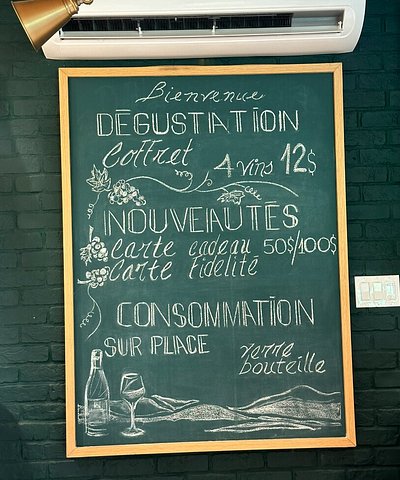 Bienvenue
DÉGUSTATION
Coffret 4 vins 12$
NOUVEAUTÉS
Carte cadeau 50$/100$
Carte fidélité
CONSOMMATION
SUR PLACE verre
bouteille